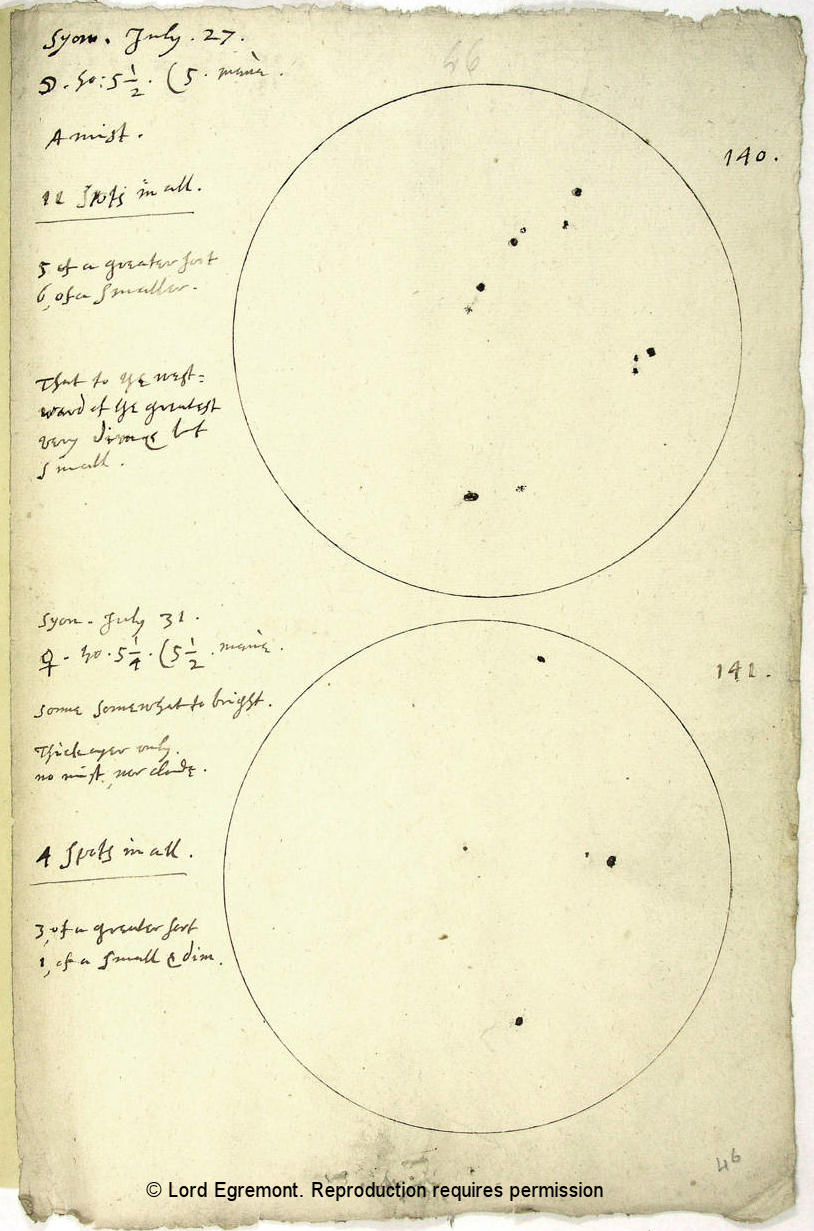 46
Syon. July .27.
☽. ho: 5 1/2. (5. manè.
140.
A mist.
11 Spots in all.
5 of a greater sort
6, of a smaller.
That to the west=
ward of the greatest
very dimme but
small.
Syon. July 31.
♀. ho. 5 1/4. (5 1/2. manè.
141.
Sonne somewhat to bright.
Thick ayer only.
no mist, nor cloude.
4 Spots in all.
3, of a greater sort
1, of a small & dim.
46
© Lord Egremont. Reproduction requires permission